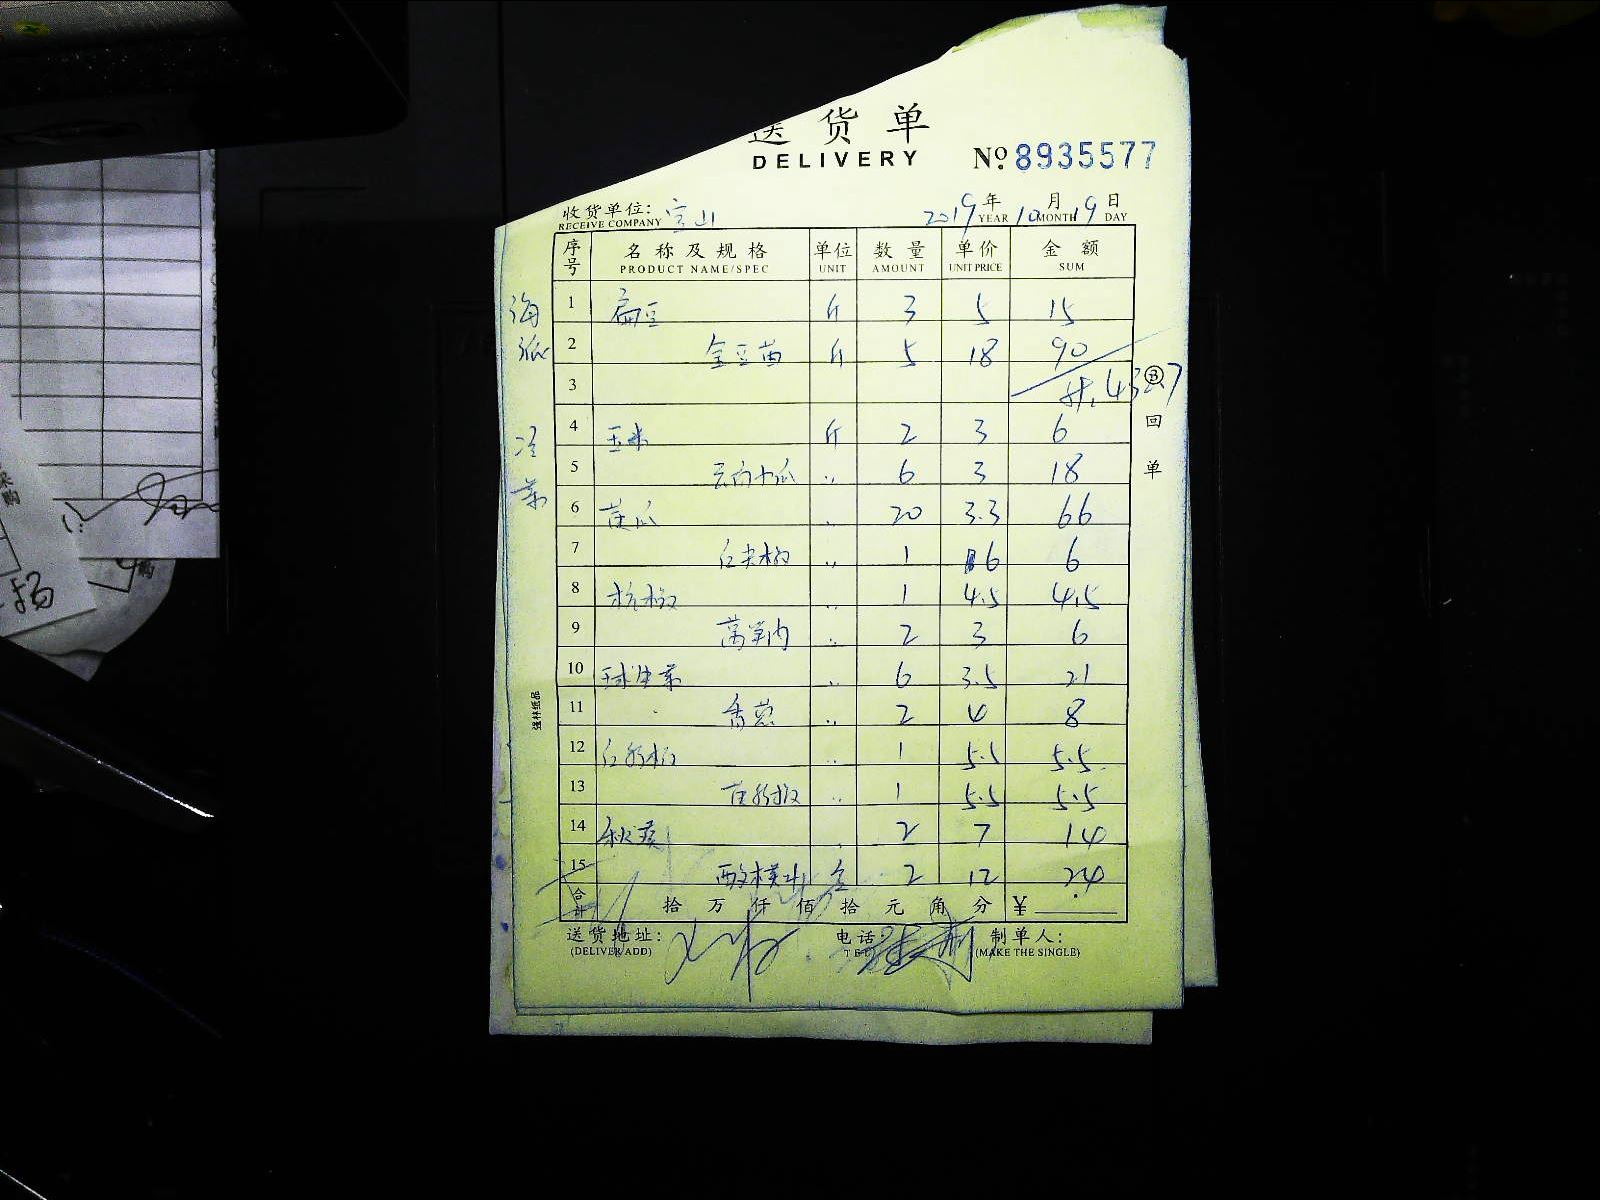 送货单
DELIVERY
№ 8935577
收货单位: 宝山 2019年10月19日
RECEIVE COMPANY YEAR MONTH DAY
序号 名称及规格 单位 数量 单价 金额
PRODUCT NAME/SPEC UNIT AMOUNT UNIT PRICE SUM
1 扁豆 斤 3 5 15
2 金豆苗 斤 5 18 90
3 共 4327
4 玉米 斤 2 3 6
5 6 3 18
6 黄瓜 20 3.3 66
7 红尖椒 1 6 6
8 杭椒 1 4.5 4.5
9 2 3 6
10 球生菜 6 3.5 21
11 香葱 2 4 8
12 红彩椒 1 5.5 5.5
13 黄彩椒 1 5.5 5.5
14 秋葵 2 7 14
15 盒 2 12 24
合计 拾 万 仟 佰 拾 元 角 分 ¥
送货地址: 电话: 制单人:
(DELIVER/ADD) TEL (MAKE THE SINGLE)
冷菜
回单
强林纸品
采购